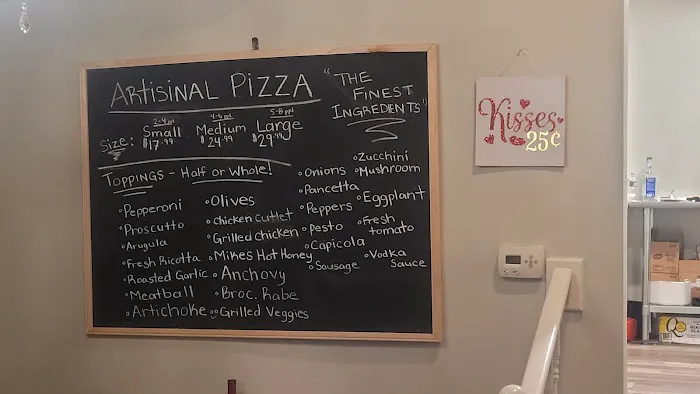 ARTISINAL PIZZA
"THE FINEST INGREDIENTS"
2-4 ppl 4-6 ppl 5-8 ppl
SIZE: Small Medium Large
$17.99 $24.99 $29.99
TOPPINGS - HALF OR WHOLE!
Pepperoni
Proscutto
Arugula
Fresh Ricotta
Roasted Garlic
Meatball
Artichoke
Olives
Chicken Cutlet
Grilled chicken
Mikes Hot Honey
Anchovy
Broc. Rabe
Grilled Veggies
Onions
Pancetta
Peppers
Pesto
Capicola
Sausage
Zucchini
Mushroom
Eggplant
Fresh tomato
Vodka Sauce
Kisses
25¢